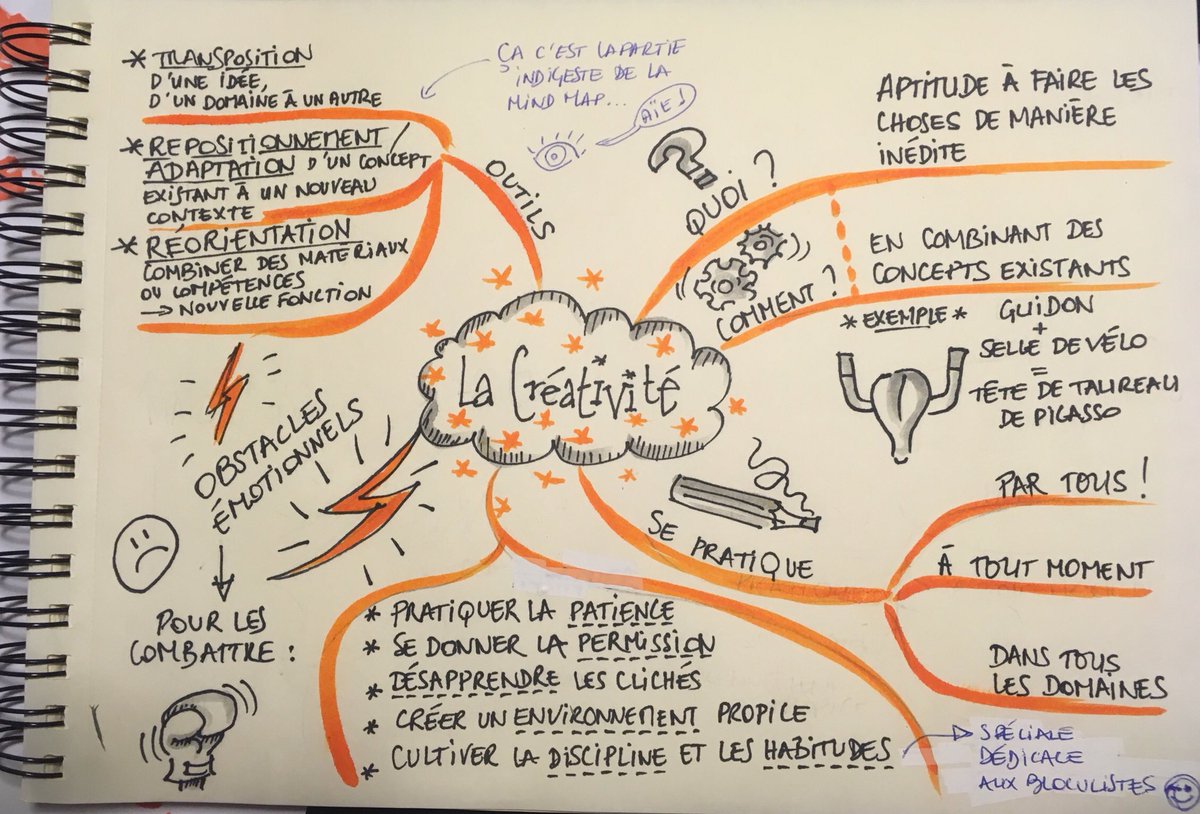 * TRANSPOSITION
D'UNE IDÉE,
D'UN DOMAINE À UN AUTRE
* REPOSITIONNEMENT/
ADAPTATION D'UN CONCEPT
EXISTANT À UN NOUVEAU
CONTEXTE
* RÉORIENTATION
COMBINER DES MATERIAUX
OU COMPÉTENCES
→ NOUVELLE FONCTION
OUTILS
ÇA C'EST LA PARTIE
INDIGESTE DE LA
MIND MAP...
AÏE!
QUOI ?
APTITUDE À FAIRE LES
CHOSES DE MANIÈRE
INÉDITE
COMMENT ?
EN COMBINANT DES
CONCEPTS EXISTANTS
* EXEMPLE *
GUIDON
+
SELLE DE VÉLO
=
TÊTE DE TAUREAU
DE PICASSO
La Créativité
OBSTACLES
ÉMOTIONNELS
POUR LES
COMBATTRE :
* PRATIQUER LA PATIENCE
* SE DONNER LA PERMISSION
* DÉSAPPRENDRE LES CLICHÉS
* CRÉER UN ENVIRONNEMENT PROPICE
* CULTIVER LA DISCIPLINE ET LES HABITUDES
SE PRATIQUE
PAR TOUS !
À TOUT MOMENT
DANS TOUS
LES DOMAINES
SPÉCIALE
DÉDICACE
AUX BLOCULISTES